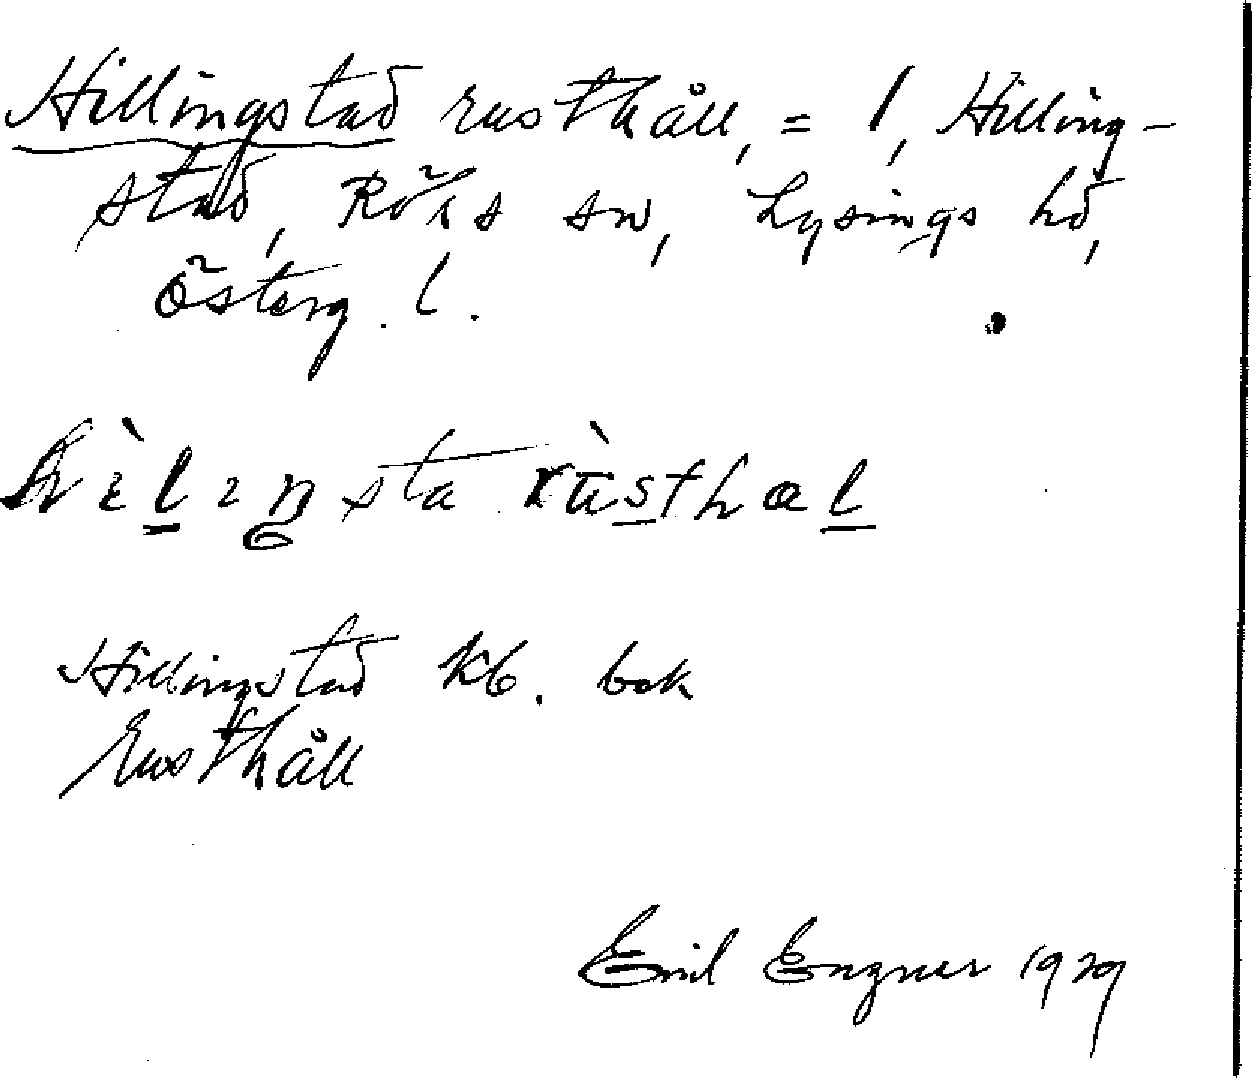 Hillingstad rusthåll, = 1, Hilling-
stad, Röks sn, Lysings hd,
Österg. l.
rùsthal
Hillingstad kb. bok
rusthåll
Emil Engner 1929